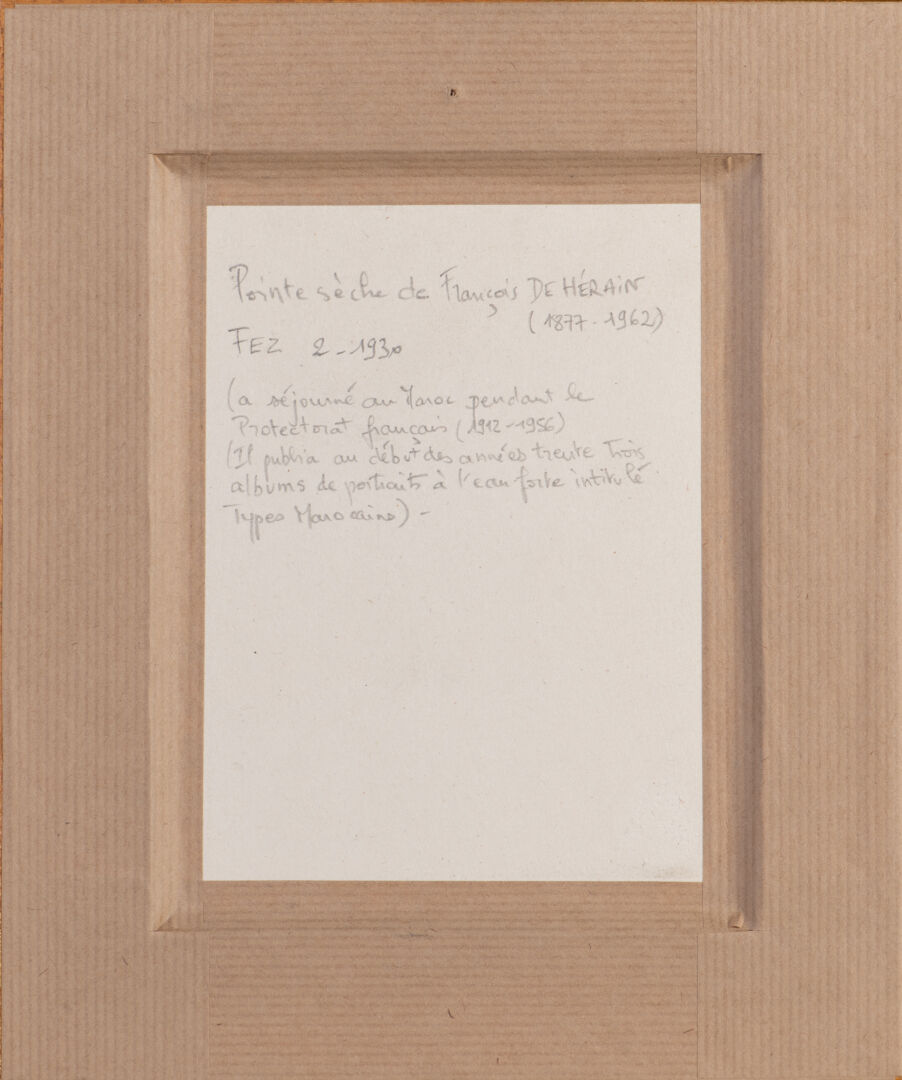 Pointe sèche de François DE HÉRAIN
(1877-1962)
FEZ 2-1930
(a séjourné au Maroc pendant le
Protectorat français (1912-1956)
(Il publia au début des années trente Trois
albums de portraits à l'eau forte intitulé
Types Marocains) -